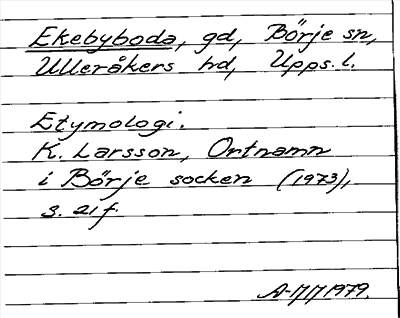 Ekebyboda, gd, Börje sn,
Ulleråkers hd, Upps. l.
Etymologi.
K. Larsson, Ortnamn
i Börje socken (1973),
s. 21 f.
1979.